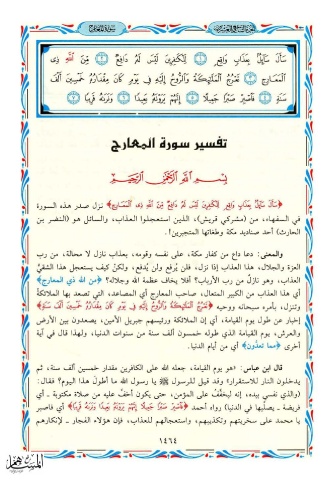 سَأَلَ سَآئِلٌ بِعَذَابٍ وَاقِعٍ ﴿١﴾ لِّلْكَٰفِرِينَ لَيْسَ لَهُۥ دَافِعٌ ﴿٢﴾ مِّنَ ٱللَّهِ ذِى
ٱلْمَعَارِجِ ﴿٣﴾ تَعْرُجُ ٱلْمَلَٰٓئِكَةُ وَٱلرُّوحُ إِلَيْهِ فِى يَوْمٍ كَانَ مِقْدَارُهُۥ خَمْسِينَ أَلْفَ
سَنَةٍ ﴿٤﴾ فَٱصْبِرْ صَبْرًا جَمِيلًا ﴿٥﴾ إِنَّهُمْ يَرَوْنَهُۥ بَعِيدًا ﴿٦﴾ وَنَرَىٰهُ قَرِيبًا ﴿٧﴾
تفسير سورة المعارج
بِسْمِ اللَّهِ الرَّحْمَٰنِ الرَّحِيمِ
﴿سَأَلَ سَآئِلٌ بِعَذَابٍ وَاقِعٍ لِّلْكَٰفِرِينَ لَيْسَ لَهُۥ دَافِعٌ مِّنَ ٱللَّهِ ذِى ٱلْمَعَارِجِ﴾ نزل صدر هذه السورة
في السفهاء، من (مشركي قريش)، الذين استعجلوا العذاب، والسائل هو (النضر بن
الحارث) أحد صناديد مكة وطغاتها المتجبرين!.
والمعنى: دعا داعٍ من كفار مكة، على نفسه وقومه، بعذاب نازل لا محالة، من رب
العزة والجلال، هذا العذاب إذا نزل، فلن يُرفع ولن يُدفع، ولكنْ كيف يستعجل هذا الشقيُّ
العذاب، وهو نازلٌ من رب الأرباب؟ أفلا يخاف عظمة الله وجلاله؟ ﴿من الله ذي المعارج﴾
أي هذا العذاب من الكبير المتعال، صاحب المعارج أي المصاعد، التي تصعد بها الملائكة
وتنزل، بأمره سبحانه ووحيه ﴿تَعْرُجُ ٱلْمَلَٰٓئِكَةُ وَٱلرُّوحُ إِلَيْهِ فِى يَوْمٍ كَانَ مِقْدَارُهُۥ خَمْسِينَ أَلْفَ سَنَةٍ﴾
إخبار عن طول يوم القيامة، أي إن الملائكة ورئيسهم جبريل الأمين، يصعدون بين الأرض
والعرش، يوم القيامة الذي طوله خمسون ألف سنة من سنوات الدنيا، ولهذا قال في آية
أخرى ﴿مما تعدُّون﴾ أي من أيام الدنيا.
قال ابن عباس: «هو يوم القيامة، جعله الله على الكافرين مقدار خمسين ألف سنة، ثم
يدخلون النار للاستقرار» وقد قيل للرسول ﷺ يا رسول الله ما أطولَ هذا اليوم؟ فقال:
(والذي نفسي بيده، إنه ليخفَّف على المؤمن، حتى يكون أخفَّ عليه من صلاة مكتوبة ـ أي
فريضة ـ يصلِّيها في الدنيا) رواه أحمد ﴿فَٱصْبِرْ صَبْرًا جَمِيلًا إِنَّهُمْ يَرَوْنَهُۥ بَعِيدًا وَنَرَىٰهُ قَرِيبًا﴾ أي فاصبر
يا محمد على سخريتهم وتكذيبهم، واستعجالهم للعذاب، فإن هؤلاء الفجار ـ لإنكارهم
١٤٦٤